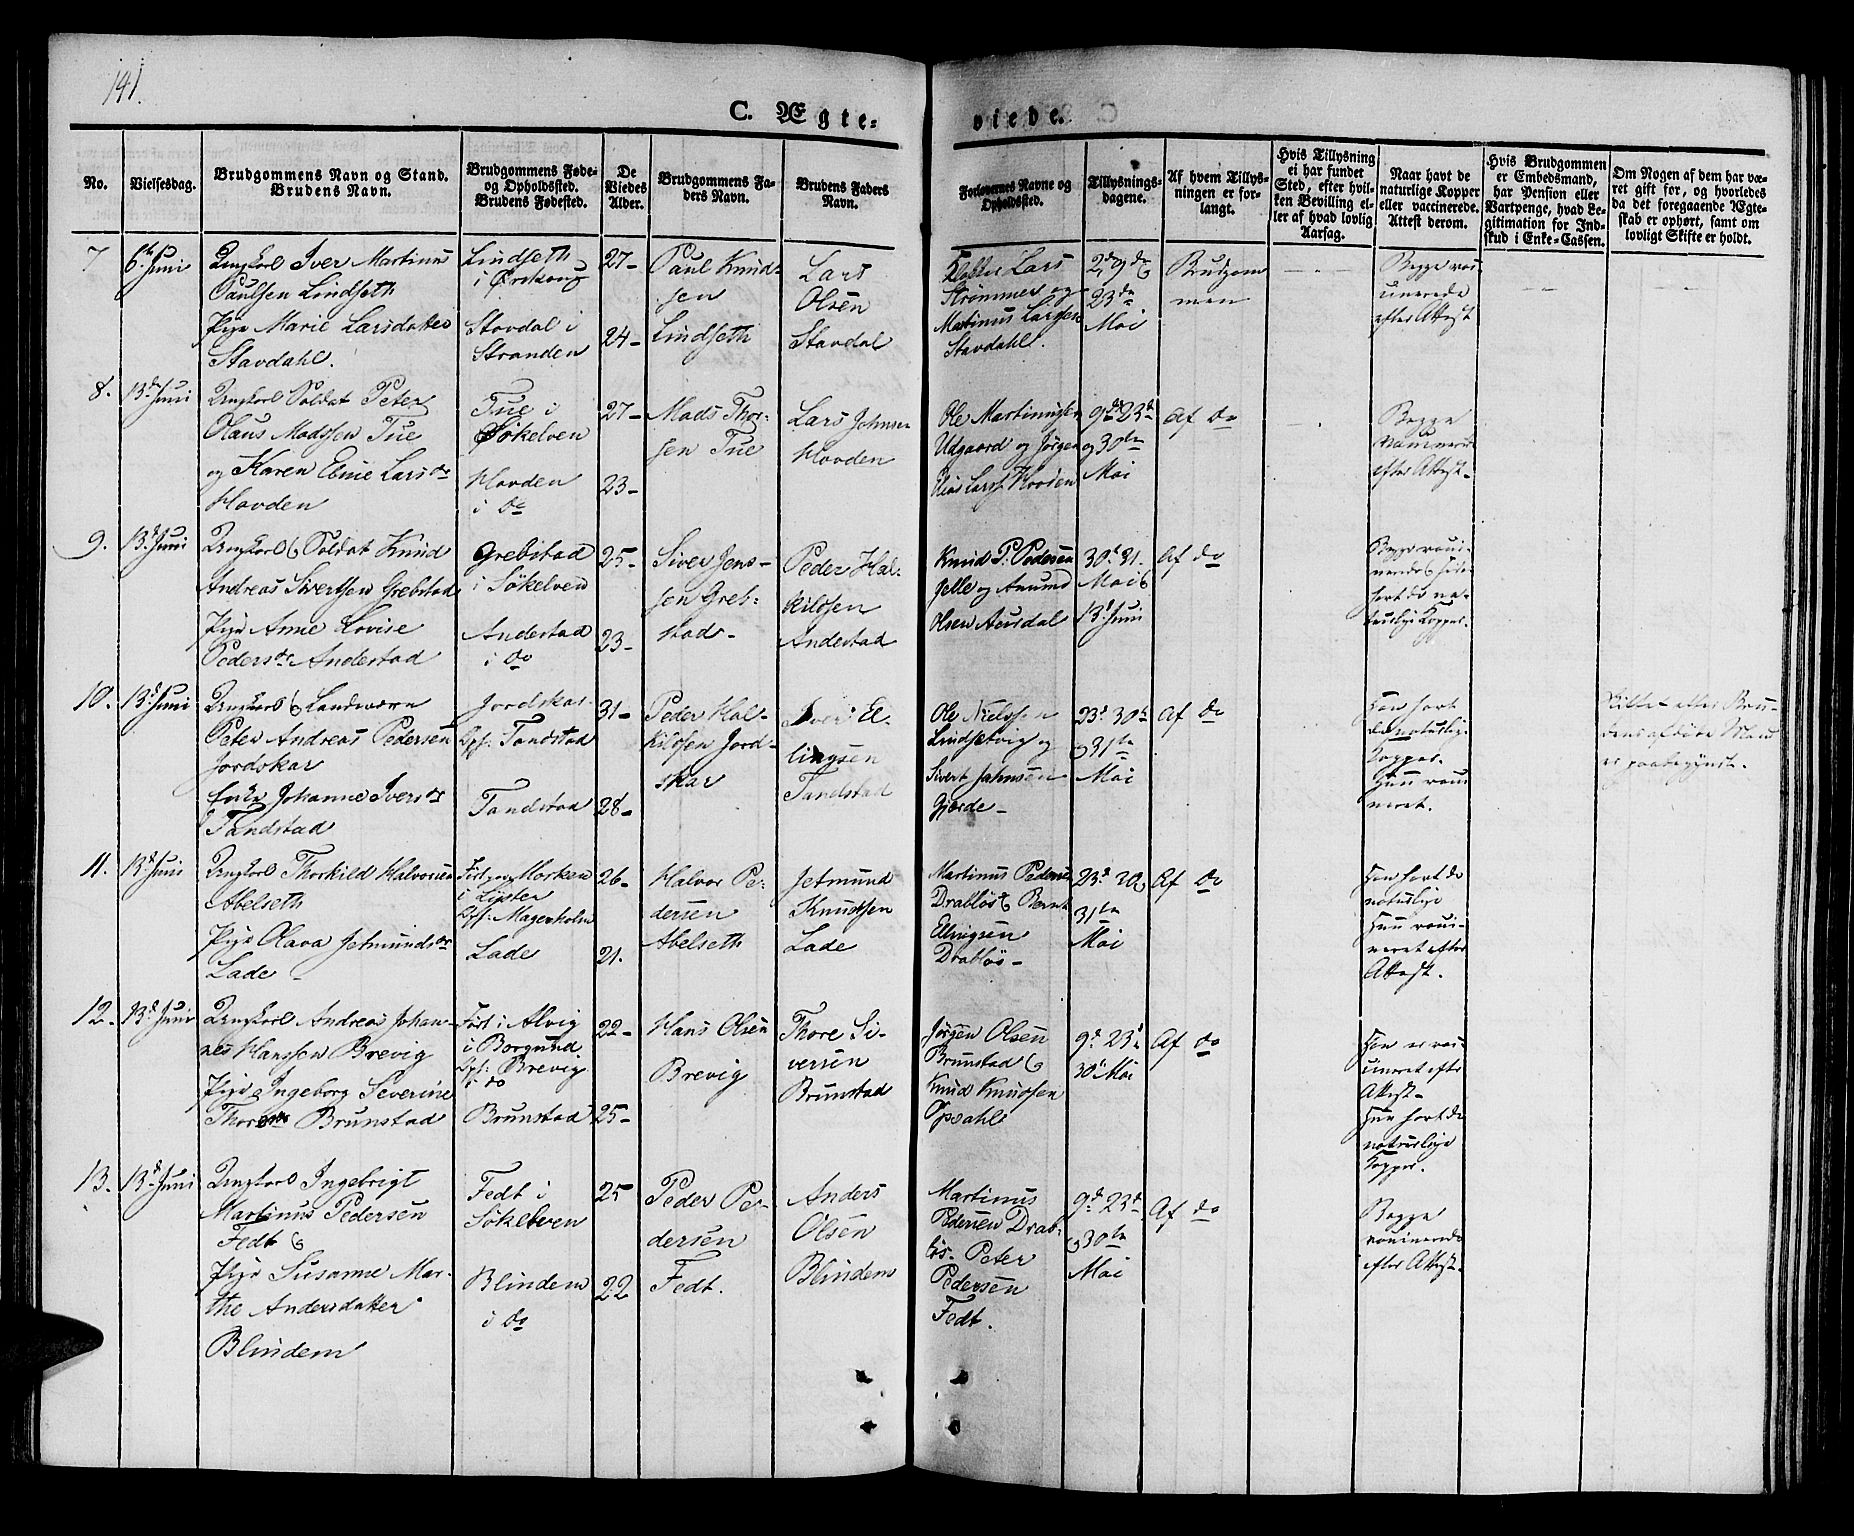 141.
C. Ægte-
viede.
No.
Vielsesdag.
Brudgommens Navn og Stand.
Brudens Navn.
Brudgommens Føde-
og Opholdssted.
Brudens Fødested.
De
Viedes
Alder.
Brudgommens Fa-
ders Navn.
Brudens Faders
Navn.
Forlovernes Navne og
Opholdssted.
Tillysnings-
dagene.
Af hvem Tillys-
ningen er for-
langt.
Hvis Tillysning
ei har fundet
Sted, efter hvil-
ken Bevilling el-
ler af hvad lovlig
Aarsag.
Naar havt de
naturlige Kopper
eller vaccinerede.
Attest derom.
Hvis Brudgommen
er Embedsmand,
har Pension eller
Vartpenge, hvad Le-
gitimation for Ind-
skud i Enke-Cassen.
Om Nogen af dem har væ-
ret gift før, og hvorledes
da det foregaaende Ægte-
skab er ophørt, samt om
lovligt Skifte er holdt.
7
6te Juni
Ungkarl Iver Martinus
Paulsen Lindseth
Pige Marie Larsdatter
Stavdahl.
Lindseth
i Ørskoug
Stavdal i
Stranden
27-
24-
Paul Knud-
sen
Lindseth
Lars
Olsen
Stavdal
Lars
Strømmes og
Martinus Larsen
Stavdahl.
2d 9de &
23de
Mai
Brudgom
men
Begge vac-
cinerede
efter Attest
8.
13de Juni
Ungkarl Soldat Peter
Olaus Madssen Tue
og Karen Elme Larsdr
Hovden
Tue i
Søkelven
Hovden
i do
27-
23-
Mads Thor-
sen Tue
Lars Johnsen
Hovden
Ole Martinussen
Udgaard og Jørgen
Elias Lars Hovden
9de 23de
og 30te
Mai
Af do
Begge
vaccinerede
efter Attest-
9.
13de Juni
Ungkarl & Soldat Knud
Andreas Sivertsen Grebstad
Pige Anne Lovise
Pedersdr Andestad
Grebstad
i Søkelven
Andestad
i do
25-
23-
Siver Jens-
sen Greb-
stad-
Peder Hal-
kildsen
Andestad
Knud P. Pedersen
Jelle og Amund
Olsen Aursdal
30te 31.
Mai &
13de Juni
Af do
Begge vacci-
nerede
havt de na-
turlige Kopper.
10.
13de Juni
Ungkarl & Landværn
Peter Andreas Pedersen
Jordskar
Enke Johanne Iversdr
Tandstad
Jordskar
Opf: Tandstad
Tandstad
31-
28-
Peder Hal-
kildsen Jord-
skar
Iver El-
lingsen
Tandstad
Ole Nielssen
Lindsetvig og
Sivert Johnsen
Gjærde-
23de 30te
& 31te
Mai
Af do
Han havt
de naturlige
Kopper.
Hun vacci
neret.
Skiftet efter Bru-
dens afdøde Mand
er paabegyndt.
11.
13de Juni
Ungkarl Thorkild Halvorsen
Abelseth
Pige Olava Jetmundsdr
Lade-
Født paa Morken
i Lyster
Opf: Magerholm
Lade
26-
21.
Halvor Pe-
dersen
Abelseth
Jetmund
Knudsen
Lade
Martinus Pedersen
Drabløs & Bernt
Ellingsen
Drabløs-
23de 30 &
31te
Mai
Af do
Han havt de
naturlige
Hun vacci-
neret efter
Attest.
12.
13de Juni
Ungkarl Andreas Johan-
nes Hanssen Brevig
Pige Ingeborg Severine
Brunstad
Født i Alvig
i Borgund
Opf: Brevig
i do
Brunstad
22-
25-
Hans Olsen
Brevig
Thore Si-
versen
Brunstad
Jørgen Olsen
Brunstad &
Knud Knudsen
Opsahl
9de 23de
30te Mai
Af do
Han er vac-
cineret efter
Attest-
Hun havt de
naturlige
Kopper.
13.
13de Juni
Ungkarl Ingebrigt
Martinus Pedersen
Fedt &
Pige Susanne Mar-
the Andersdatter
Blindem
Fedt i
Søkelven
Blindem
i do
25
22
Peder Pe-
dersen
Fedt.
Anders
Olsen
Blindem
Martinus
Pedersen Drab-
løs- Peter
Pedersen
Fedt.
9de 23de
& 30te
Mai
Af do
Begge
vaccinerede
efter Attest-